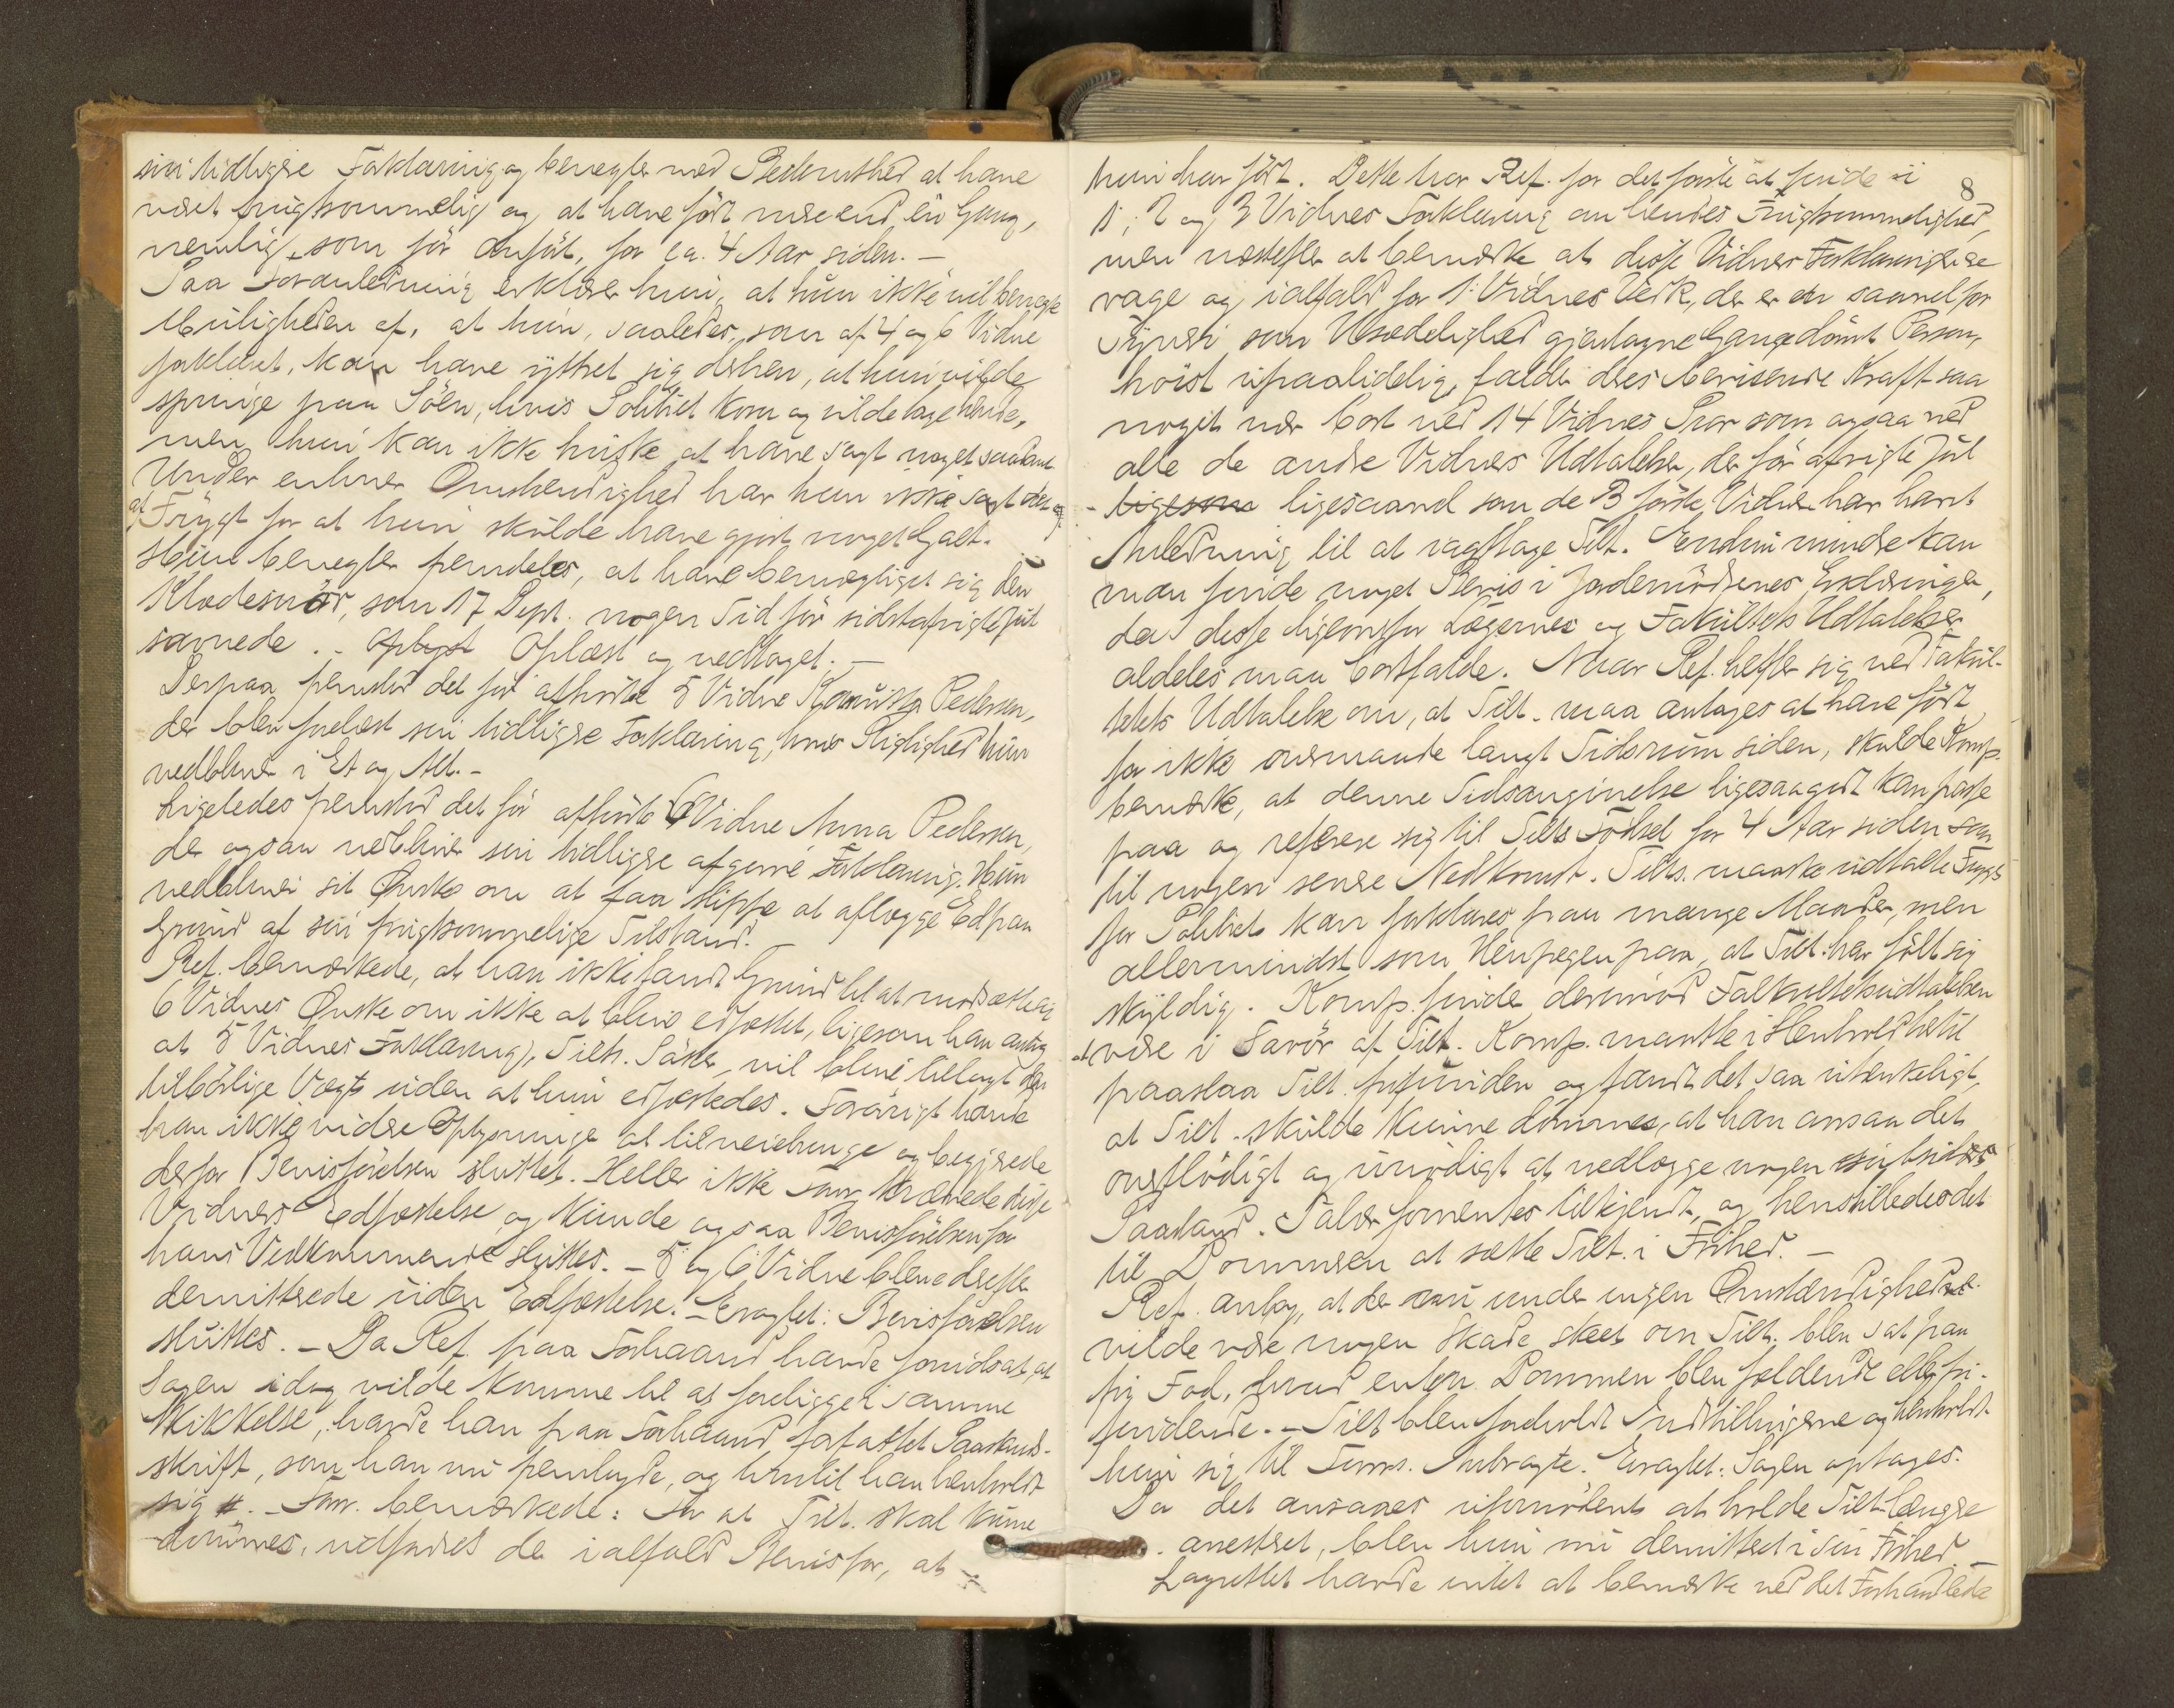 sin tidligere Forklaring og benegter med Bestemthed at have
været frugtsommelig og at have født mere end en Gang,
nemlig, som før anført, for ca. 4 Aar siden. –
Paa Foranledning erklærer hun, at hun ikke vil benegte
Muligheden af, at hun, saaledes som af 4 og 6 Vidne
forklaret, kan have yttret sig derhen, at hun vilde
springe paa Søen, hvis Politiet kom og vilde tage hende,
men hun kan ikke huske at have sagt noget saadant
Under enhver Omstendighed har hun ikke sagt det
af Frygt for at hun skulde have gjort noget Galt.
Hun benegter fremdeles, at have bemægtiget sig den
Klædesnor, som 17 Dept. nogen Tid før sidstafvigte Jul
savnede. - Oplyst Oplæst og vedtaget. –
Derpaa fremstod det før afhørte 5 Vidne Pedersen,
der blev forelæst sin tidligere Forklaring, hvis Rigtighed hun
vedbliver i Et og Alt. –
Ligeledes fremstod det før afhørte 6 Vidne Anna Pedersen,
der ogsaa vedbliver sin tidligere afgivne Forklaring. Hun
vedbliver sit Ønske om at faa slippe at aflægge Ed paa
Grund af sin frugtsommelige Tilstand. –
Ref. bemærkede, at han ikke fandt Grund til at modsætte sig
6 Vidnes Ønske om ikke at blive edfæstet, ligesom han antog
at 5 Vidnes Forklaring, Tilts. Søster, vil blive tillagt den
tilbørlige Vægt uden at hun edfæstedes. Forøvrigt havde
han ikke videre Oplysninger at tilveiebringe og begjærede
derfor Bevisførelsen sluttet. Heller ikke Forsv. krævede disse
Vidners Edfæstelse og kunde ogsaa Bevisførelsen for
hans Vedkommende sluttes. – 5 og 6 Vidne bleve derefter
demitterede uden Edfæstelse. – Eragtet: Bevisførelsen
sluttes. – Da Ref. paa Forhaand havde forudsat, at
Sagen idag vilde komme til at foreligge i samme
Skikkelse, havde han paa Forhaand forfattet Paastands-
skrift, som han nu fremlagde, og hvortil han henholdt
sig. – Forsv. bemærkede: For at Tilt. skal kunne
dømmes, udfordres der ialfald Bevis for, at
8
hun har født. Dette har Ref. for det første at finde i
1, 2 og 3 Vidnes Forklaring om hendes Frugtsommelighed,
men næstefter at bemærke at disse Vidners Forklaringer ere
vage og ialfald for 1. Vidnes Vedk., der er en saavel for
Tyveri som Usædelighed gjentagne Gange dømt Person,
høist upaalidelig, falder deres bevisende Kraft saa
noget nær bort ved 14 Vidnes Svar som ogsaa ved
alle de andre Vidners Udtalelser, der før afvigte Jul
- ligesom ligesaavel som de 3 første Vidner har havt
Anledning til at iagttage Tilt. Endnu mindre kan
man finde noget Bevis i Jordemødrenes Erklæringer,
da disse ligeoverfor Lægernes og Fakultets Udtalelser
aldeles maa bortfalde. Naar Ref. hefter sig ved Fakul-
tetets Udtalelse om, at Tilt. maa antages at have født
for ikke overmaade langt Tidsrum siden, skulde Komp.
bemærke, at denne Tidsangivelse ligesaagodt kan passe
paa og referere sig til Tilts Fødsel for 4 Aar siden som
til nogen senere Nedkomst. Tilts. maaske udtalte Frygt
for Politiet kan forklares paa mange Maader, men
allermindst som Henpegen paa, at Tilt. har følt sig
skyldig. Komp. finder derimod Falkultetsudtalelsen
at være i Favør af Tilt. Komp. maatte i Henhold hertil
paastaa Tilt. frifunden og fandt det saa utænkeligt,
at Tilt. skulde kunne dømmes, at han ansaa det
overflødigt og unødigt at nedlægge nogen subsidiær
Paastand. Salær formentes tilkjendt, og henstilledes det
til Dommeren at sætte Tilt. i Frihed. –
Ref. antog, at der nu under ingen Omstændigheder
vilde være nogen Skade skeet om Tilt. blev sat paa
fri Fod, hvad enten Dommen blev fældende eller fri-
findende. – Tilt blev foreholdt Indstillingerne og henholdt
hun sig til Forsvs. Anbragte. Eragtet: Sagen optages.
Da det ansaaes ufornødent at holde Tilt længere
arrestert, blev hun nu demitteret i sin Frihed. –
Lagrettet havde intet at bemærke ved det Forhandlede